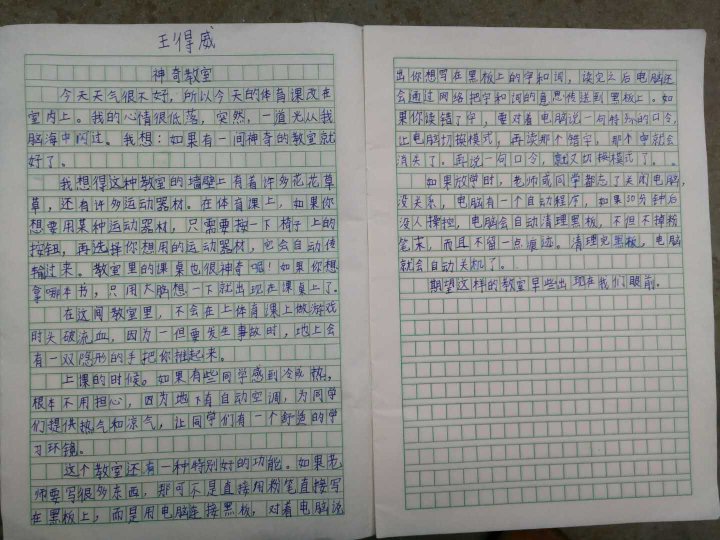 王得威
神奇教室
今天天气很不好，所以今天的体育课改在
室内上。我的心情很低落，突然，一道光从我
脑海中闪过。我想：如果有一间神奇的教室就
好了。
我想得这种教室的墙壁上有着许多花花草
草，还有许多运动器材。在体育课上，如果你
想要用某种运动器材，只需要按一下椅子上的
按钮，再选择你想用的运动器材，它会自动传
输过来。教室里的课桌也很神奇呢！如果你想
拿哪本书，只用大脑想一下就出现在课桌上了。
在这间教室里，不会在上体育课上做游戏
时头破流血，因为一但要发生事故时，地上会
有一双隐形的手把你推起来。
上课的时候。如果有些同学感到冷或热，
根本不用担心，因为地下有自动空调，为同学
们提供热气和凉气，让同学们有一个舒适的学
习环镜。
这个教室还有一种特别好的功能。如果老
师要写很多东西，那可不是直接用粉笔直接写
在黑板上，而是用电脑连接黑板，对着电脑说
出你想写在黑板上的字和词，读完之后电脑还
会通过网络把字和词的意思传送到黑板上。如
果你读错了字，要对着电脑说一句特别的口令，
让电脑切换模式，再读那个错字。那个字就会
消失了。再说一句口令，就又切换模式了。
如果放学时，老师或同学都忘了关闭电脑，
没关系，电脑有一个自动程序，如果30分钟后
没人操控，电脑会自动清理黑板，不但不掉粉
笔末，而且不留一点痕迹。清理完黑板，电脑
就会自动关机了。
期望这样的教室早些出现在我们眼前。